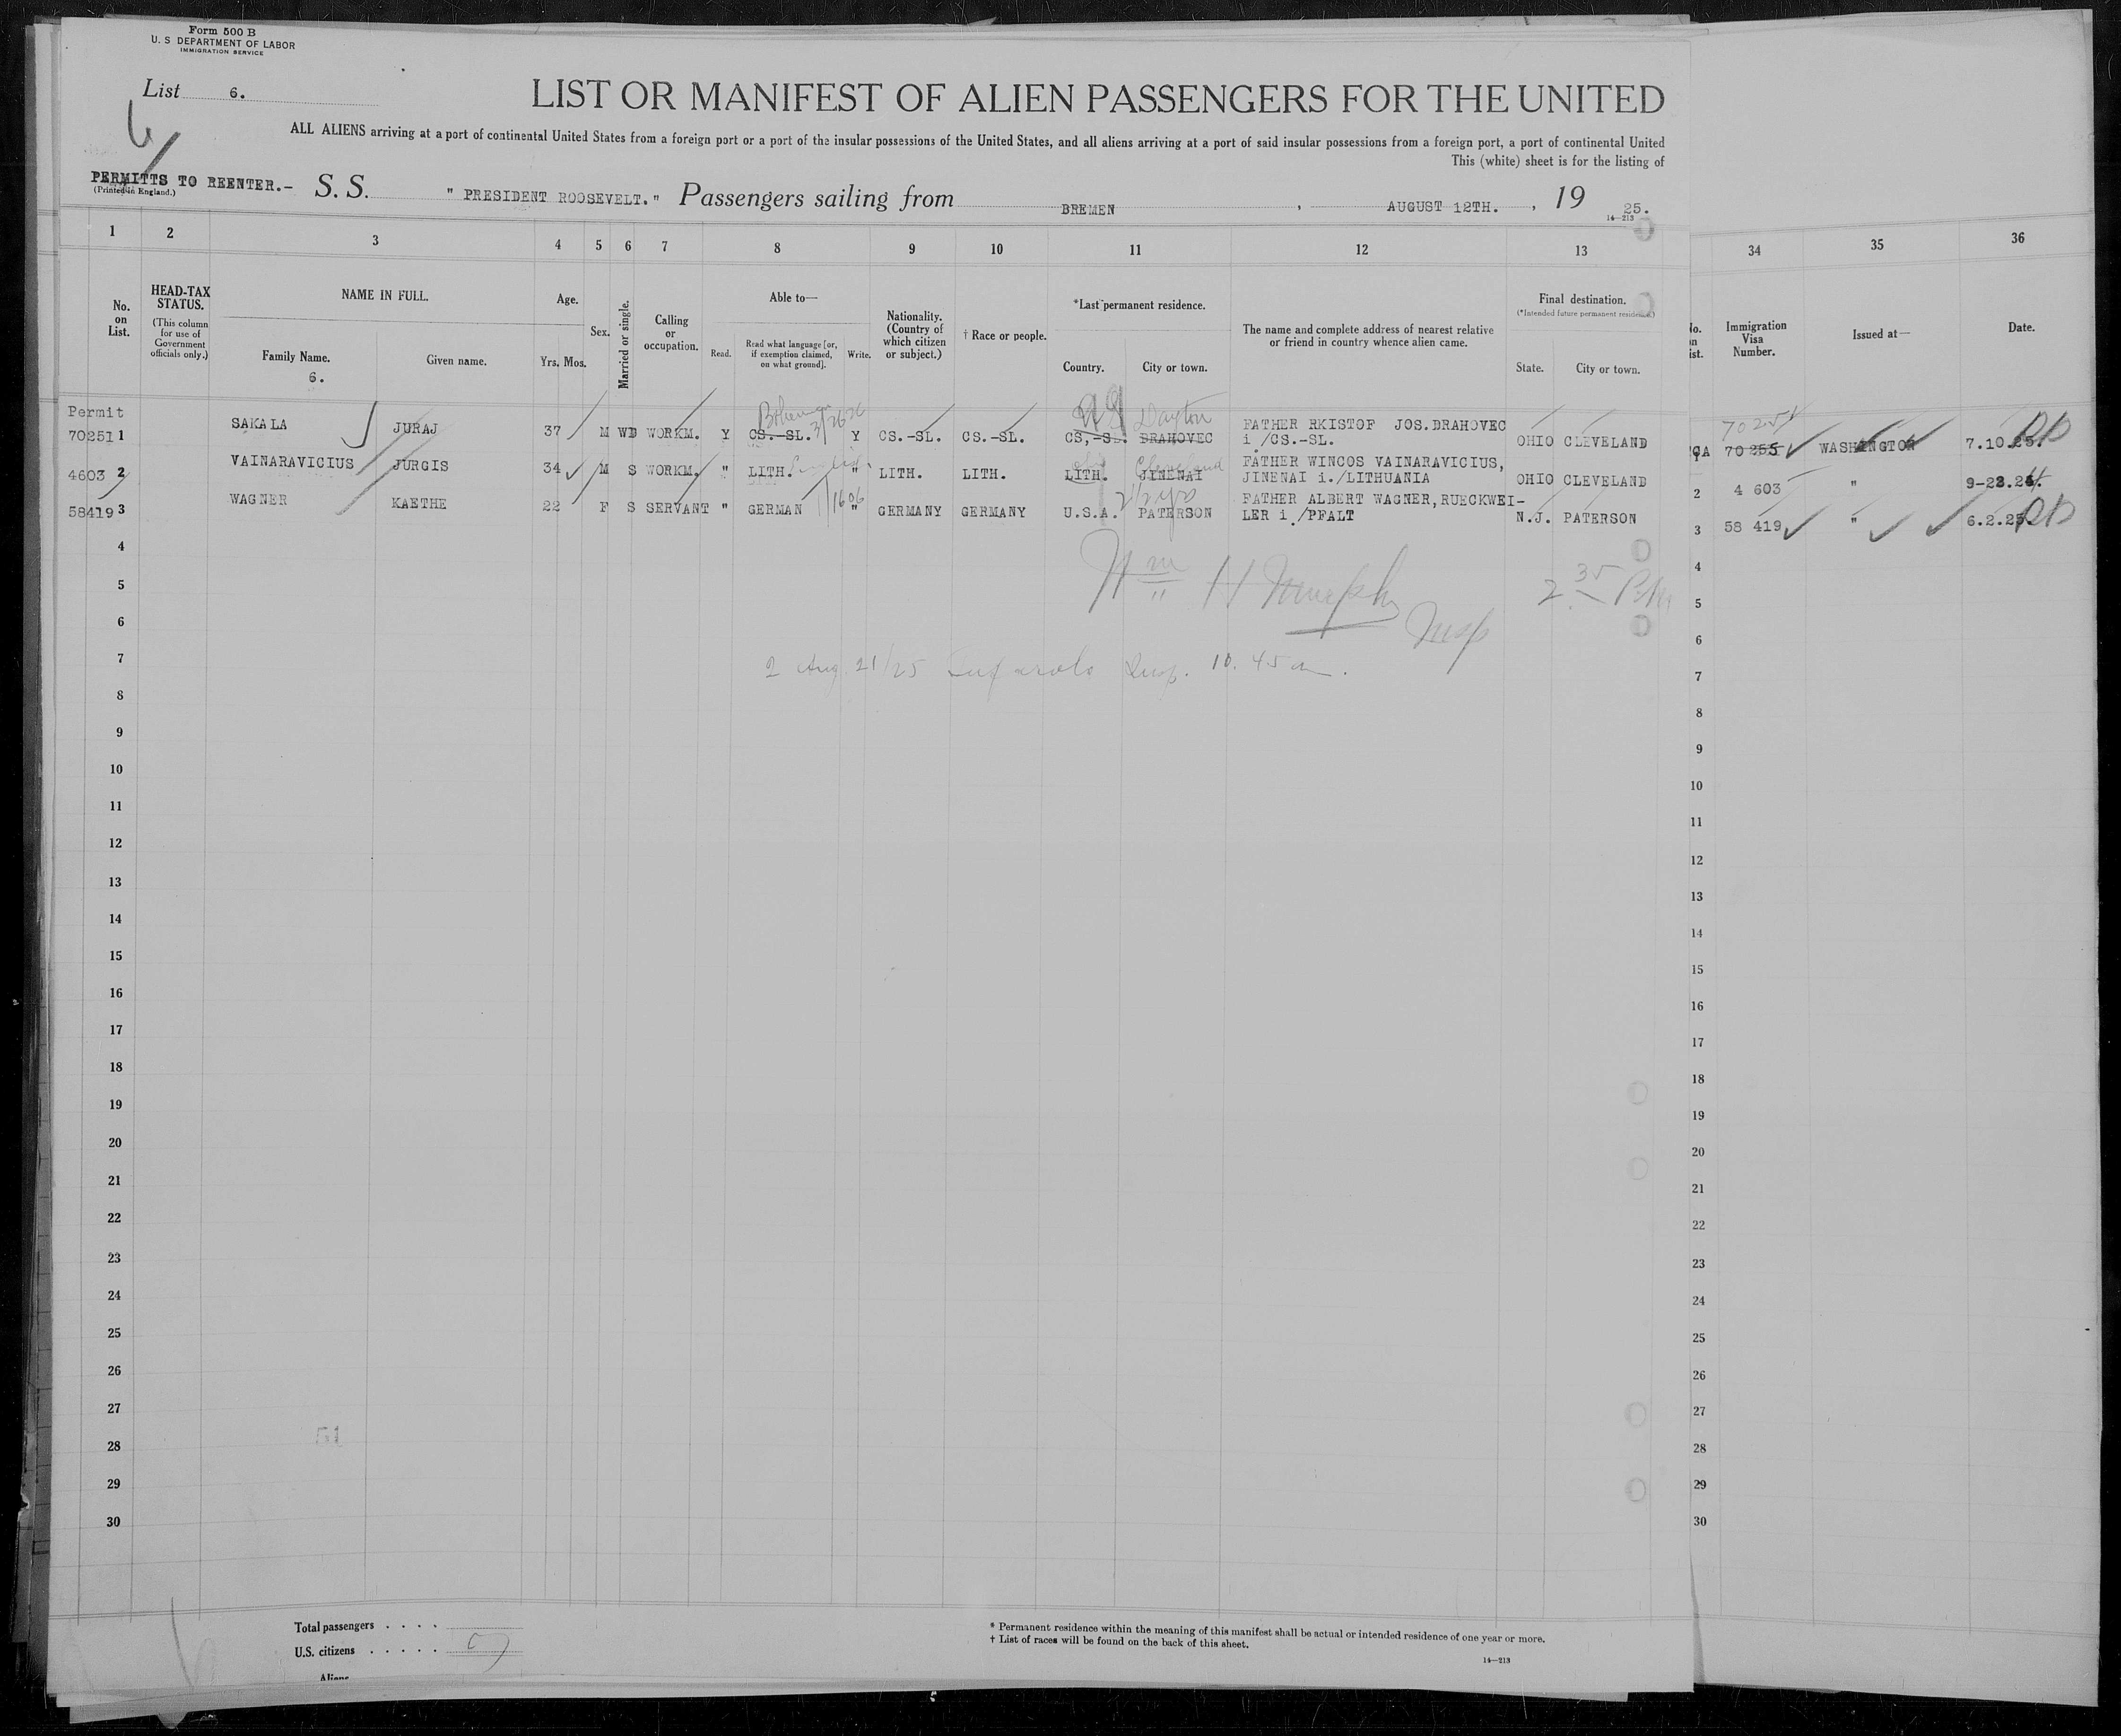 Form 500 B
U. S DEPARTMENT OF LABOR
IMMIGRATION SERVICE
List 6.
LIST OR MANIFEST OF ALIEN PASSENGERS FOR THE UNITED
ALL ALIENS arriving at a port of continental United States from a foreign port or a port of the insular possessions of the United States, and all aliens arriving at a port of said insular possessions from a foreign port, a port of continental United
This (white) sheet is for the listing of
PERMITTS TO REENTER.- S. S. " PRESIDENT ROOSEVELT." Passengers sailing from BREMEN , AUGUST 12TH. , 19 25.
(Printed in England.)
14—213
1 2 3 4 5 6 7 8 9 10 11 12 13 34 35 36
No. on List.
HEAD-TAX STATUS.
(This column for use of Government officials only.)
NAME IN FULL.
Family Name.
6.
Given name.
Age.
Yrs. Mos.
Sex.
Married or single.
Calling or occupation.
Able to—
Read.
Read what language [or, if exemption claimed, on what ground].
Write.
Nationality. (Country of which citizen or subject.)
† Race or people.
*Last permanent residence.
Country. City or town.
The name and complete address of nearest relative or friend in country whence alien came.
Final destination.
(*Intended future permanent residence.)
State. City or town.
Immigration Visa Number.
Issued at—
Date.
Permit
Bohemian
Dayton
70251
70251 1 SAKALA JURAJ 37 M WD WORKM. Y CS.-SL. Y CS.-SL. CS.-SL. CS,-SL. DRAHOVEC FATHER RKISTOF JOS.DRAHOVEC i /CS.-SL. OHIO CLEVELAND 70 255 WASHINGTON 7.10.25.
English
Cleveland
4603 2 VAINARAVICIUS JURGIS 34 M S WORKM. " LITH. " LITH. LITH. LITH. JINENAI FATHER WINCOS VAINARAVICIUS, JINENAI i./LITHUANIA OHIO CLEVELAND 2 4 603 " 9-23.24.
2 1/2 yrs
58419 3 WAGNER KAETHE 22 F S SERVANT " GERMAN " GERMANY GERMANY U.S.A. PATERSON FATHER ALBERT WAGNER,RUECKWEI-LER i ./PFALT N.J. PATERSON 3 58 419 " 6.2.25.
4 4
5 5
Wm H Murphy
Insp
2 35 PM
6 6
7 7
2 Aug 21/25 Insp. 10.45 am.
8 8
9 9
10 10
11 11
12 12
13 13
14 14
15 15
16 16
17 17
18 18
19 19
20 20
21 21
22 22
23 23
24 24
25 25
26 26
27 27
51
28 28
29 29
30 30
Total passengers . . . .
U.S. citizens . . . . .
Aliens
* Permanent residence within the meaning of this manifest shall be actual or intended residence of one year or more.
† List of races will be found on the back of this sheet.
14—213